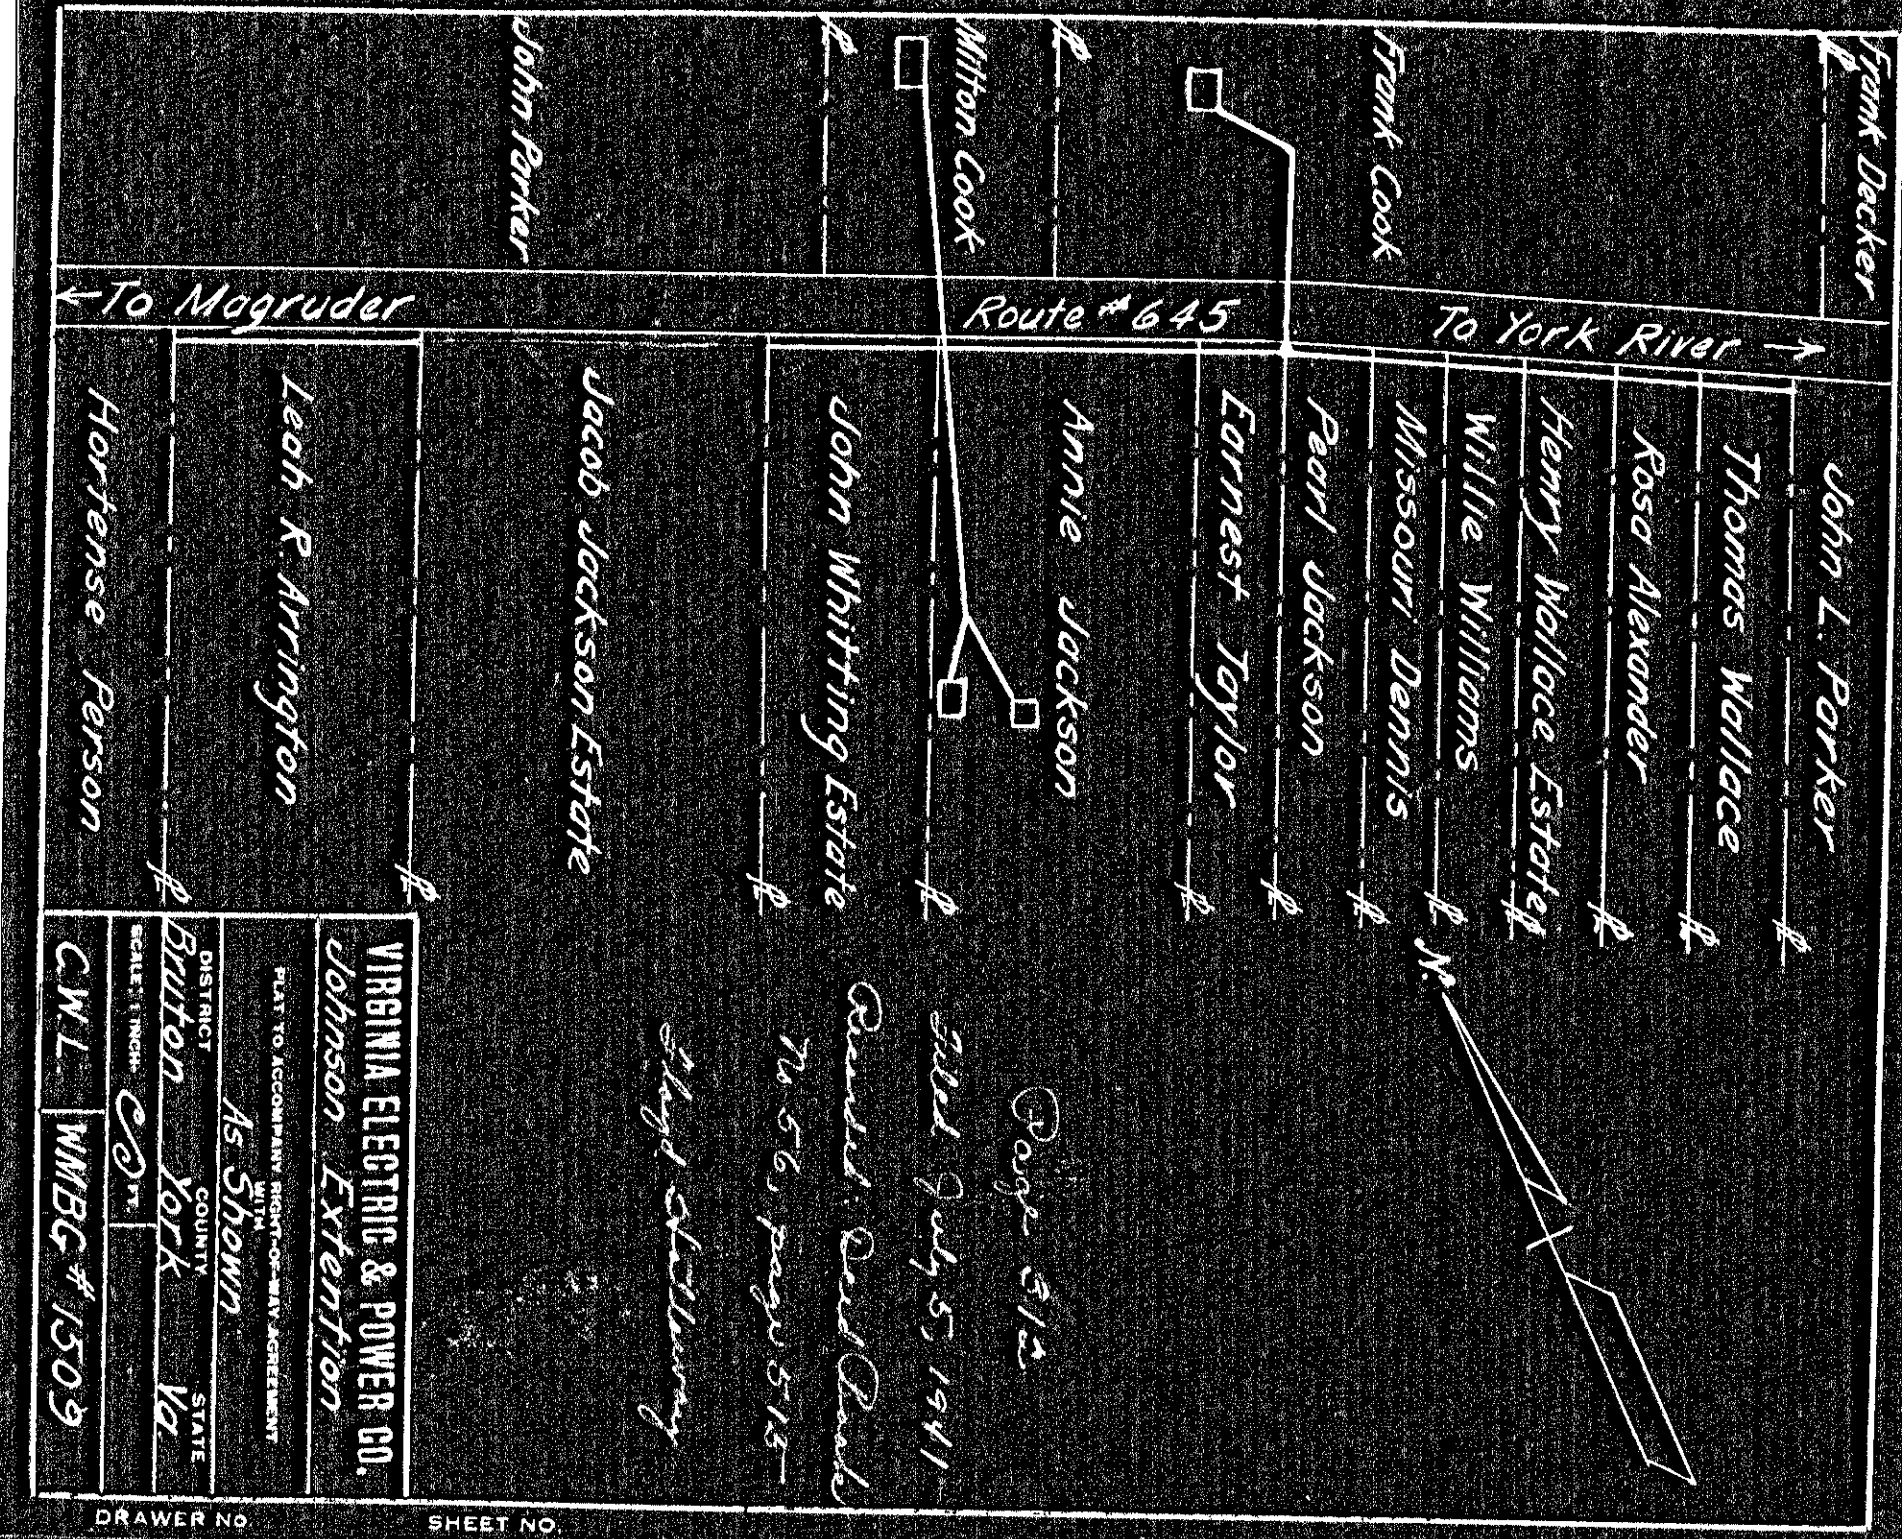 Frank Decker
℄
Frank Cook
℄
Milton Cook
℄
John Parker
←To Magruder
Route #645
To York River →
John L. Parker
℄
Thomas Wallace
℄
Rosa Alexander
℄
Henry Wallace Estate
℄
Willie Williams
℄
Missouri Dennis
℄
Pearl Jackson
℄
Earnest Taylor
℄
Annie Jackson
℄
John Whitting Estate
℄
Jacob Jackson Estate
℄
Leah R. Arrington
℄
Hortense Person
N.
Page 512
Filed July 5, 1941
Recorded: Deed Book
No 56, page 515
Floyd
VIRGINIA ELECTRIC & POWER CO.
Johnson Extention
PLAT TO ACCOMPANY RIGHT-OF-WAY AGREEMENT
WITH
As Shown
DISTRICT COUNTY STATE
Bruton York Va.
SCALE: 1 INCH= FT.
C.W.L. WMBG # 1509
DRAWER NO
SHEET NO.